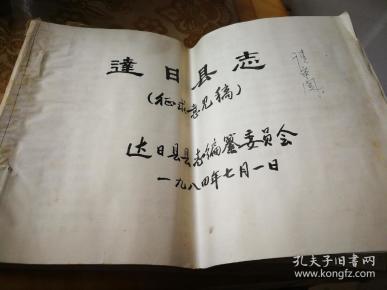 達日县志
(征求意见稿)
达日县县志编纂委员会
一九八四年七月一日
孔夫子旧书网